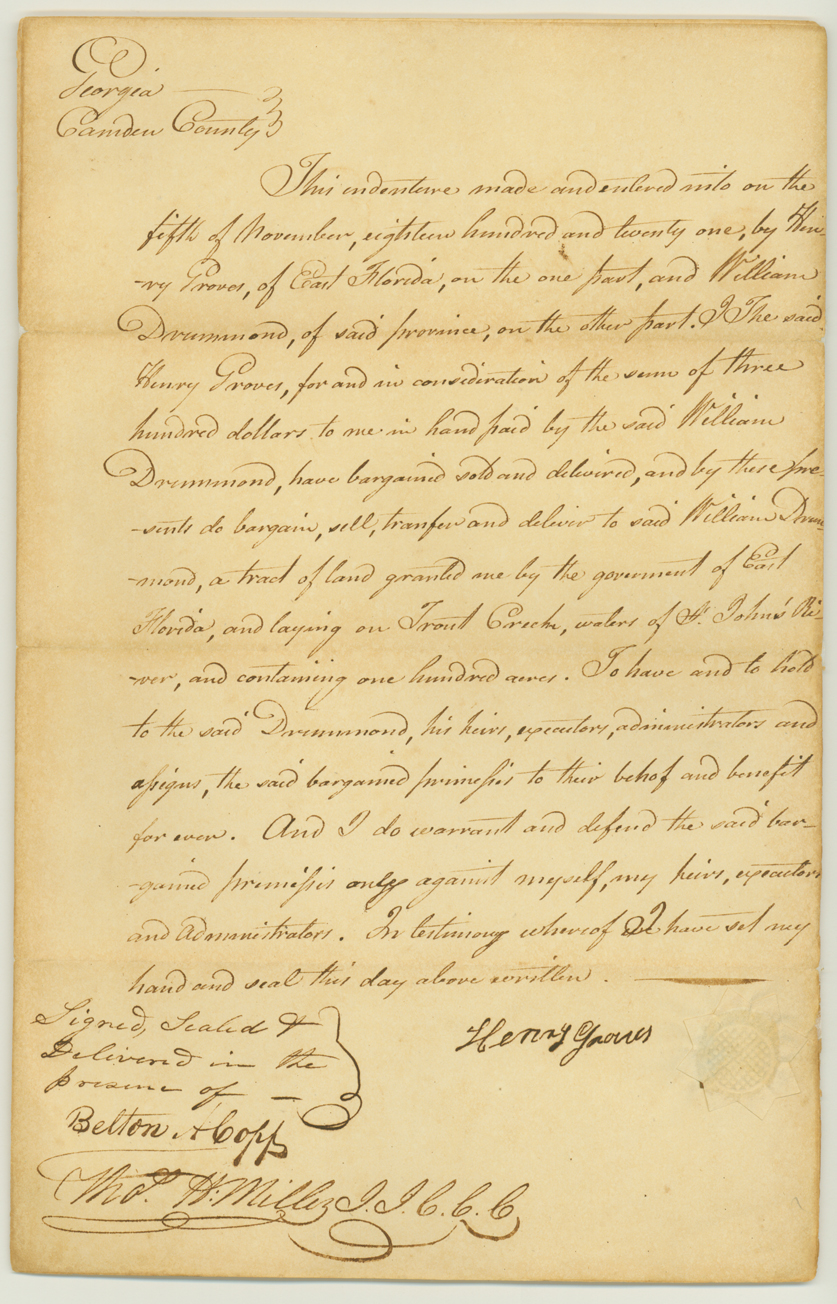 Georgia
Camden County
This indenture made and entered into on the
fifth of November, eighteen hundred and twenty one, by Hen-
-ry Groves, of East Florida, on the one part, and William
Drummond, of said province, on the other part. I The said
Henry Groves, for and in consideration of the sum of three
hundred dollars to me in hand paid by the said William
Drummond, have bargained sold and delivered, and by these pre-
-sents do bargain, sell, tranfer and deliver to said William Drum-
-mond, a tract of land granted me by the goverment of East
Florida, and laying on Trout Creek, waters of St. John's Ri-
-ver, and containing one hundred acres. To have and to hold
to the said Drummond, his heirs, executors, administrators and
assigns, the said bargained primessis to their behof and benefit
for ever. And I do warrant and defend the said bar-
-gained premissis only against myself, my heirs, executors
and administrators. In testimony whereof I have set my
hand and seal this day above written.
Signed, Sealed &
Delivered in the
presence of
Henry Groves
Belton A Copp
Thos. H. Miller J. I. C. C. C